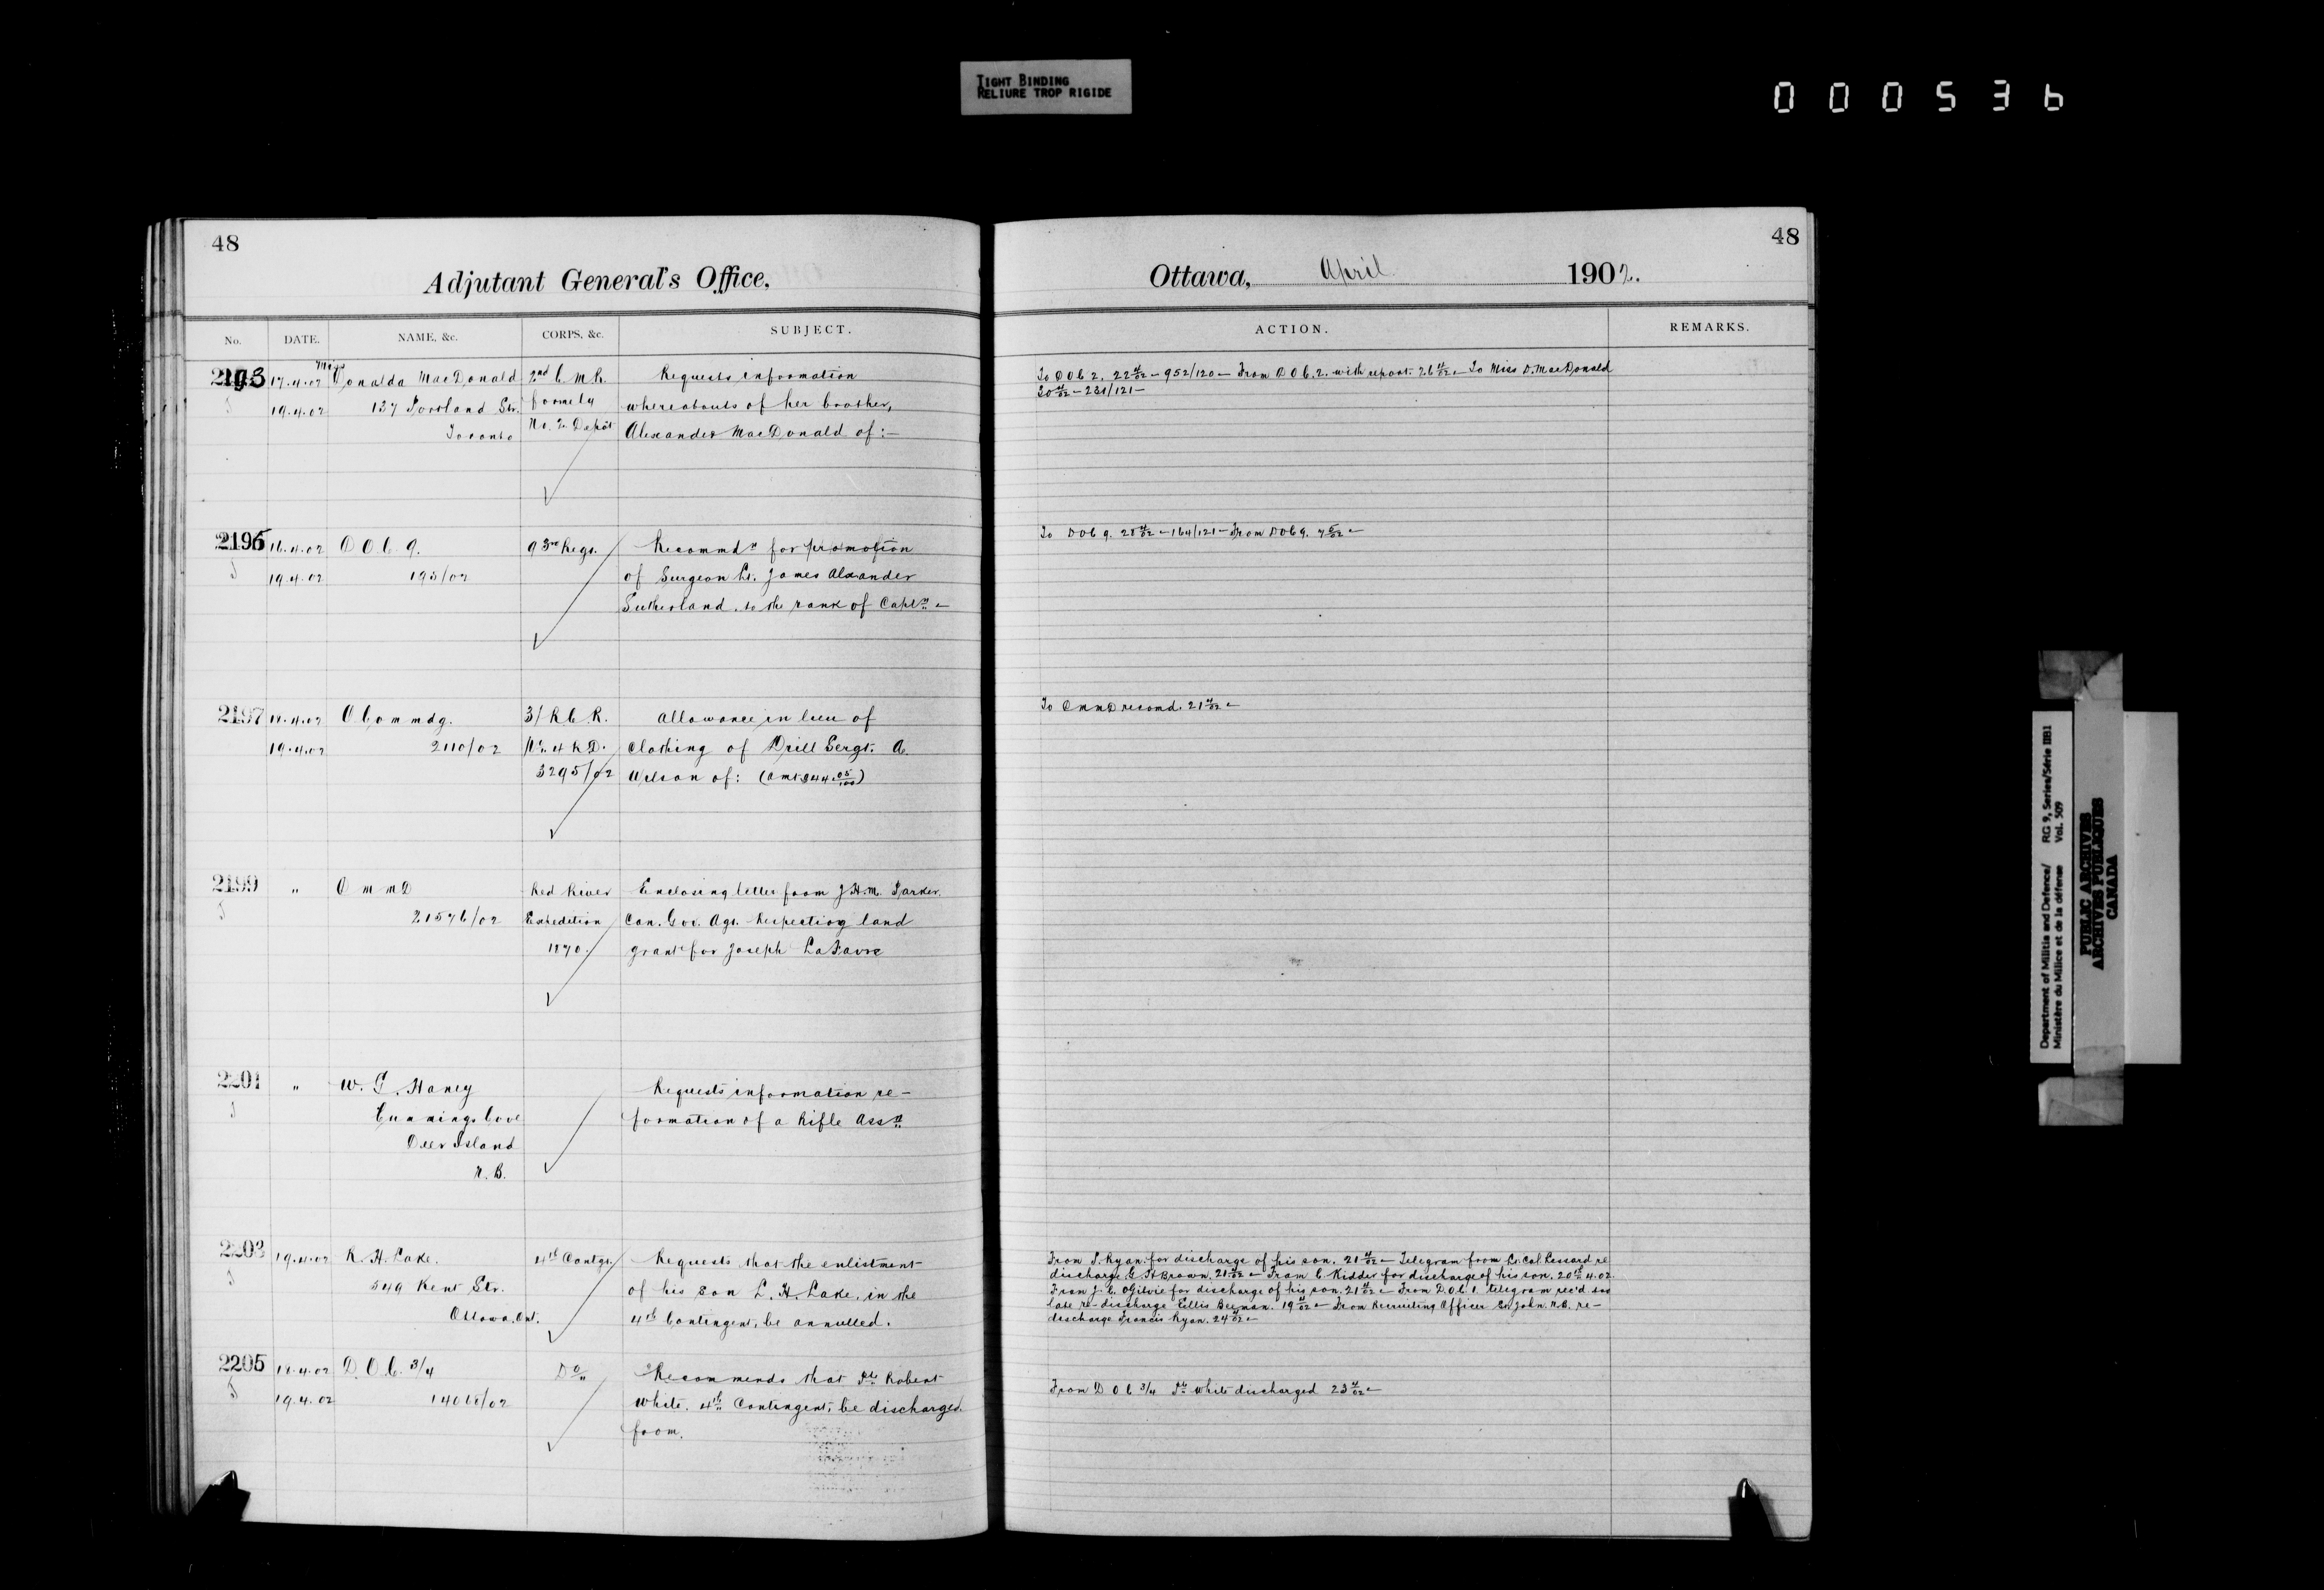 TIGHT BINDING
RELIURE TROP RIGIDE
000536
48
Adjutant General's Office,
No. DATE. NAME, &c. CORPS, &c. SUBJECT.
Miss
2193 17.4.02 Donalda MacDonald 2nd C.M.R. Requests information
19.4.02 137 Portland Str. formely whereabouts of her brother,
Toronto No. 2 Depôt Alexander MacDonald of:—
2195 16.4.02 D O C 9. 93rd Regt. Recommdn for promotion
19.4.02 195/02 of Surgeon Lt. James Alexander
Sutherland, to the rank of Captn
2197 18.4.02 O C ommdg. 3/ R.C.R. Allowance in lieu of
19.4.02 2110/02 No. 4 R.D. Clothing of Drill Sergt. A.
3295/02 Wilson of: (Amt $44 05/100)
2199 " D M M D Red River Enclosing letter from J.H.M. Parker.
21576/02 Expedition Can. Gov. Agt. Respecting land
1870. grant for Joseph LaFavre
2201 " W. G. Haney Requests information re-
Cummings Cove formation of a Rifle Assn
Deer Island
N.B.
2203 19.4.02 R. H. Lake. 4th Contgt. Requests that the enlistment
549 Kent Str. of his son L. H. Lake, in the
Ottawa, Ont. 4th Contingent, be annulled.
2205 18.4.02 D.O.C. 3/4 Do Recommends that Pte Robert
19.4.02 /02 White, 4th Contingent, be discharged
from.
48
Ottawa, April 1902.
ACTION. REMARKS.
To D O C 2. 22 4/02 – 952/120 – From D O C. 2. with report. 26 4/02 – To Miss D. MacDonald
30 4/02 – 231/121 –
To D O C 9. 28 4/02 – 164/121 – From D O C 9. 7 5/02 –
To D M M D recomd. 21 4/02 –
From S. Ryan for discharge of his son. 21 4/02 – Telegram from Lt. Col. Lessard re
discharge G. H Brown. 21 4/02 – From C. Kidder for discharge of his son. 20th 4.02.
From J. C. Ogilvie for discharge of his son. 21 4/02 – From D.O.C. 1. telegram rec'd too
late re-discharge Ellis Beeman. 19 4/02 – From Recruiting Officer St. John. N.B. re-
discharge Francis Ryan. 24 4/02 –
From D O C 3/4 Pte White discharged 23 4/02 –
Department of Militia and Defence/ RG 9, Series/Série IIB1
Ministère du Milice et de la défense Vol. 509
PUBLIC ARCHIVES
ARCHIVES PUBLIQUES
CANADA